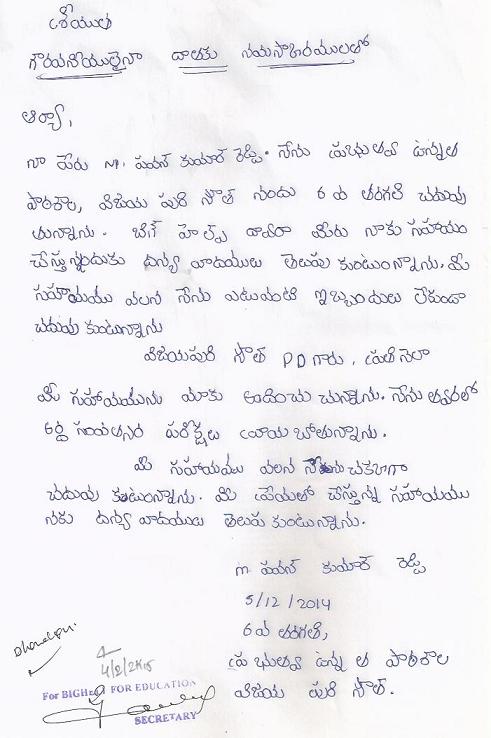 శ్రీయుత
గౌరవనీయులైనా దాతకు నమస్కారములతో
ఆర్యా,
నా పేరు M. పవన్ కుమార్ రెడ్డి. నేను ప్రభుత్వ ఉన్నత
పాఠశాల, విజయ పురి సౌత్ నందు 6 వ తరగతి చదువు
తున్నాను. బిగ్ హెల్ప్ ద్వారా మీరు నాకు సహాయం
చేస్తున్నందుకు దన్య వాదములు తెలుపు కుంటుంన్నాను. మీ
సహాయము వలన నేను ఎటువంటి ఇబ్బందులు లేకుండా
చదువు కుంటున్నాను
విజయపురి సౌత్ PD గారు, ప్రతి నెలా
మీ సహాయమును మాకు అందించు చున్నాను. నేను త్వరలో
అర్ధ సంవత్సర పరీక్షలు వ్రాయ బోతున్నాను.
మీ సహాయము వలన నేను చక్కగా
చదువు కుంటున్నాను. మీ దయతో చేస్తున్న సహాయము
నకు దన్య వాదములు తెలుపు కుంటున్నాను.
m. పవన్ కుమార్ రెడ్డి
5/12/2014
6 వ తరగతి,
ప్రభుత్వ ఉన్న త పాఠశాల
విజయ పురి సౌత్.
4/2/2K15
For BIGHELP FOR EDUCATION
SECRETARY